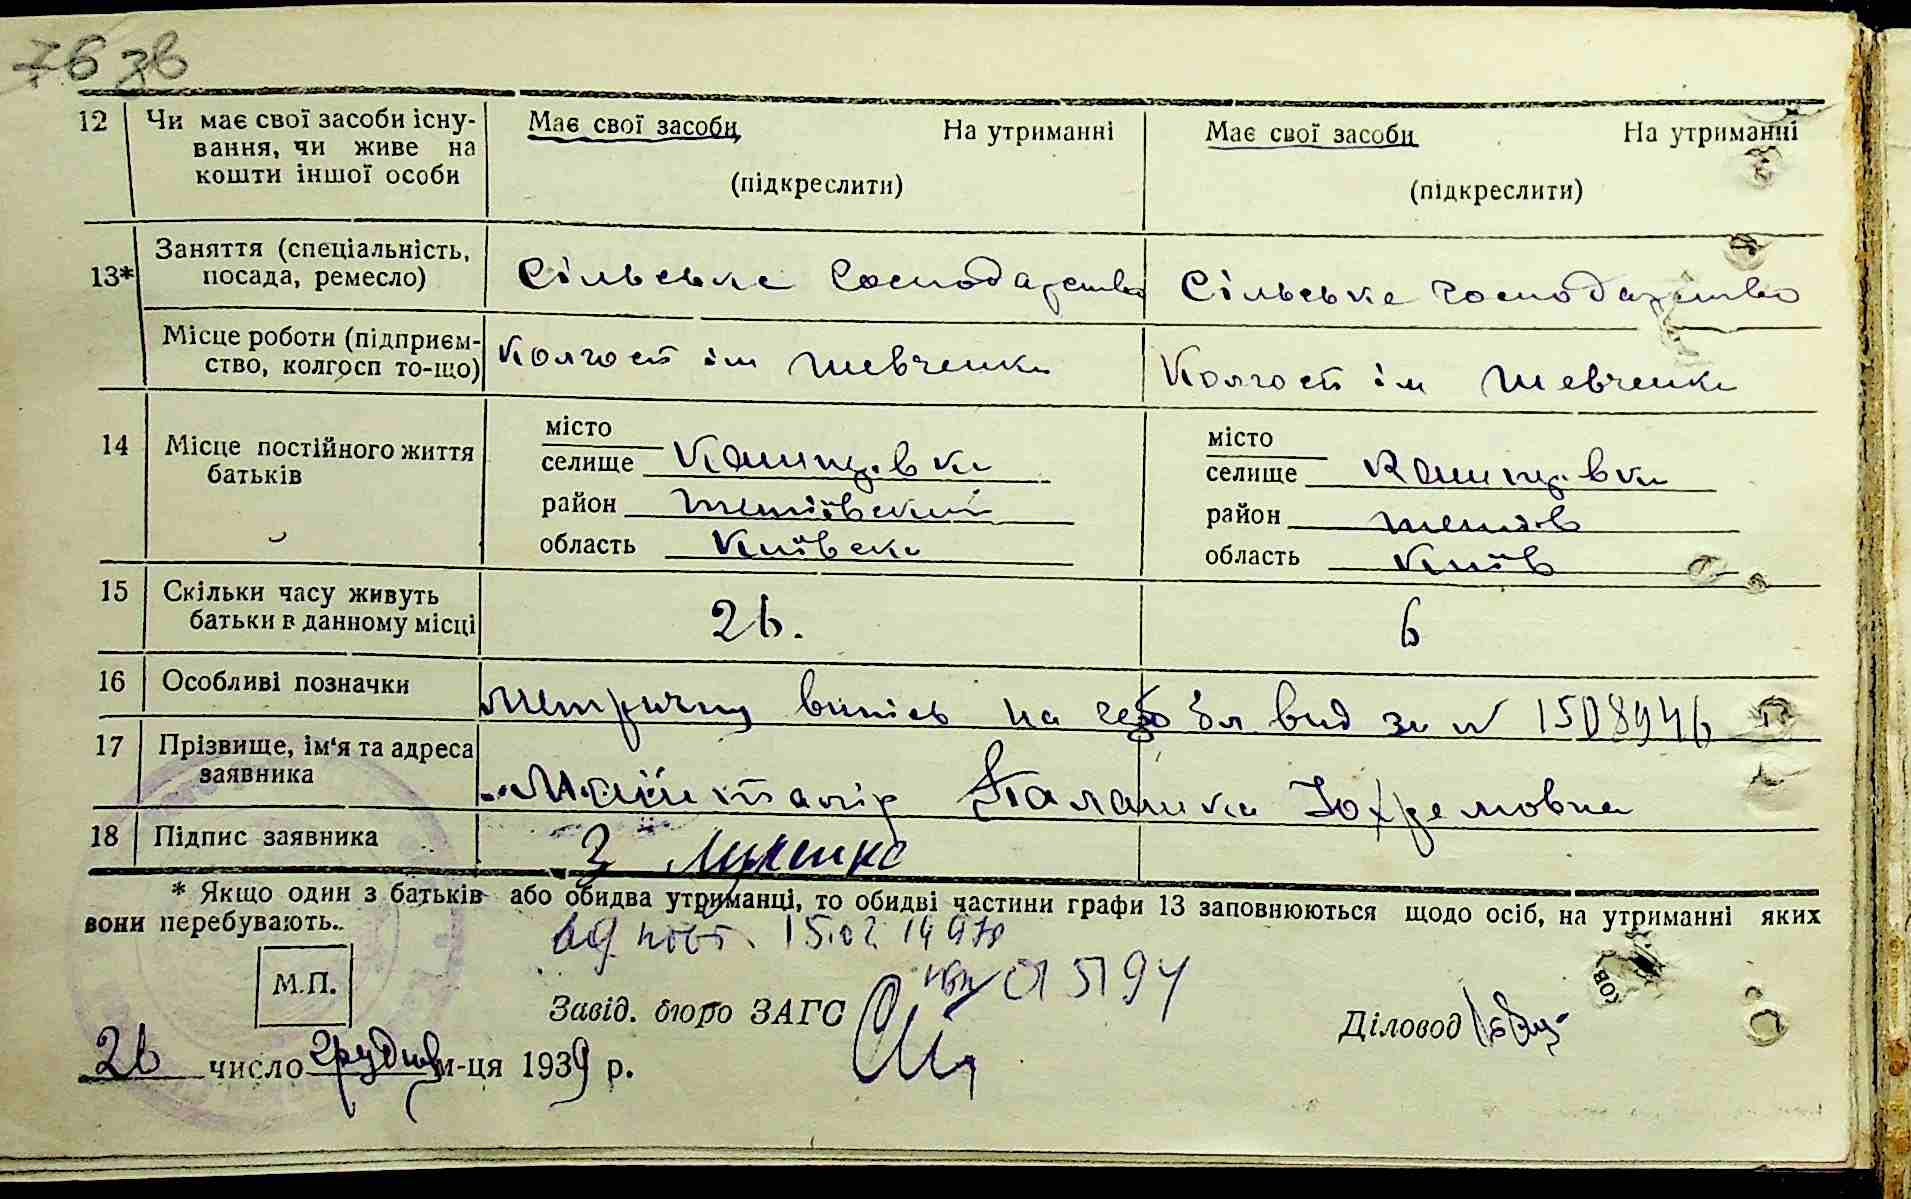 76 зв
12 Чи має свої засоби існу- Має свої засоби На утриманні Має свої засоби На утриманні
вання, чи живе на
кошти іншої особи (підкреслити) (підкреслити)
13* Заняття (спеціальність, Сільське господарство Сільське господарство
посада, ремесло)
Місце роботи (підприєм- Колгосп ім Шевченка Колгосп ім Шевченка
ство, колгосп то-що)
14 Місце постійного життя місто місто
батьків селище Кашперівка селище Кашперівка
район Тетіївський район Тетіїв
область Київска область Київ
15 Скільки часу живуть 26. 6
батьки в данному місці
16 Особливі позначки Метричну випись на 1508946
17 Прізвище, ім'я та адреса Палашка Юхремовна
заявника
18 Підпис заявника З
* Якщо один з батьків або обидва утриманці, то обидві частини графи 13 заповнюються щодо осіб, на утриманні яких
вони перебувають.
15.02
М.П. 015194
Завід. бюро ЗАГС Діловод
26 число грудня м-ця 1939 р.